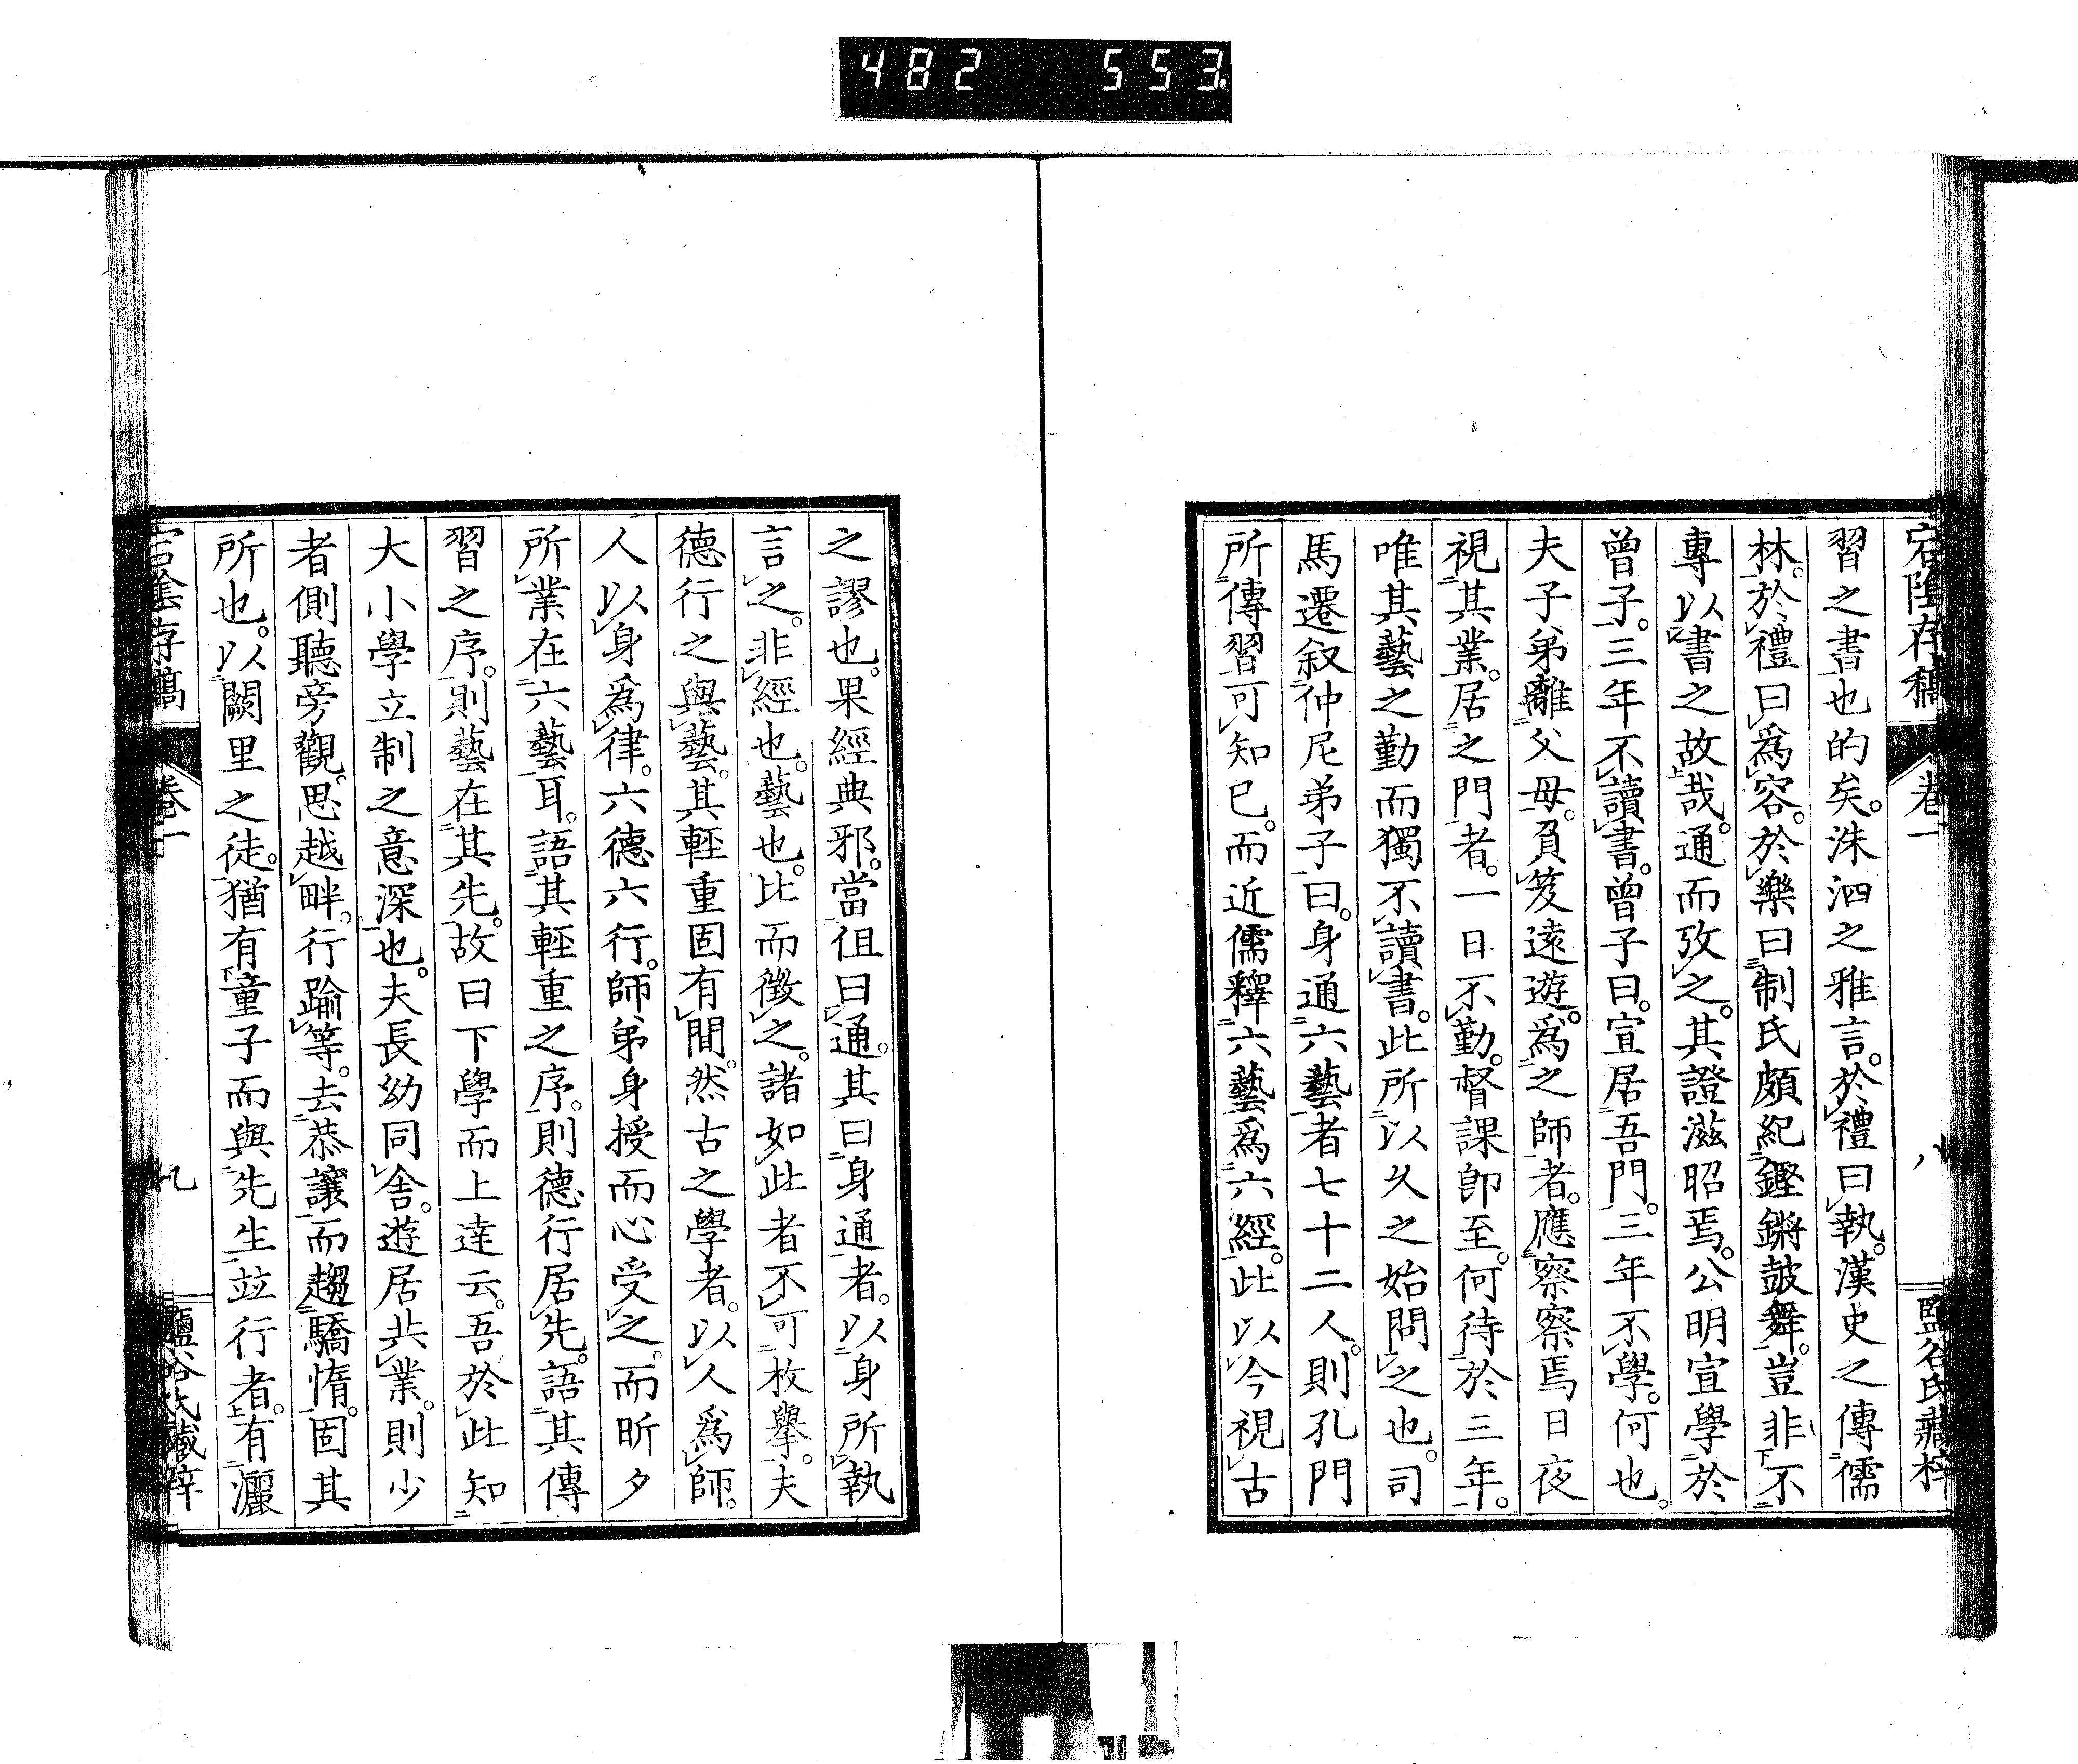 482 553
宕陰存稿 卷一 八 鹽谷氏藏梓
習之書也的矣。洙泗之雅言。於禮曰執。漢史之傳儒
林。於禮曰爲容。於樂曰制氏頗紀鏗鏘鼓舞。豈非不
專以書之故哉。通而攷之。其證滋昭焉。公明宣學於
曾子。三年不讀書。曾子曰。宣居吾門。三年不學。何也。
夫子弟離父母。負笈遠遊。爲之師者。應察察焉日夜
視其業。居之門者。一日不勤。督課卽至。何待於三年。
唯其藝之勤而獨不讀書。此所以久之始問之也。司
馬遷叙仲尼弟子曰。身通六藝者七十二人。則孔門
所傳習可知已。而近儒釋六藝爲六經。此以今視古
之謬也。果經典邪。當但曰通。其曰身通者。以身所執
言之。非經也。藝也。比而徵之。諸如此者不可枚擧。夫
德行之與藝。其輕重固有間。然古之學者。以人爲師。
人以身爲律。六德六行。師弟身授而心受之。而昕夕
所業在六藝耳。語其輕重之序。則德行居先。語其傳
習之序。則藝在其先。故曰下學而上達云。吾於此知
大小學立制之意深也。夫長幼同舍。遊居共業。則少
者側聽旁觀。思越畔。行踰等。去恭讓而趨驕惰。固其
所也。以闕里之徒。猶有童子而與先生竝行者。有灑
宕陰存稿 卷一 九 鹽谷氏藏梓